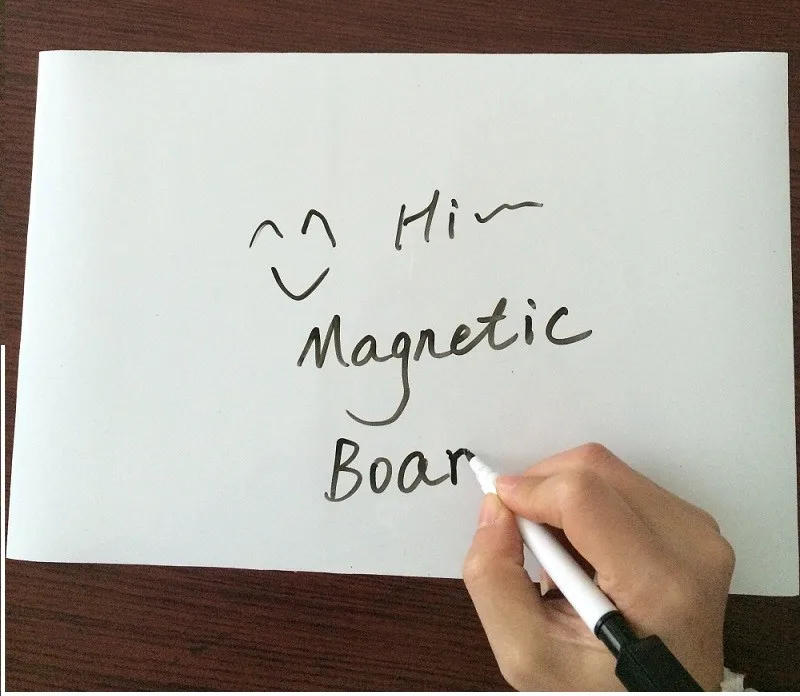 ^^ Hi~
Magnetic
Boar